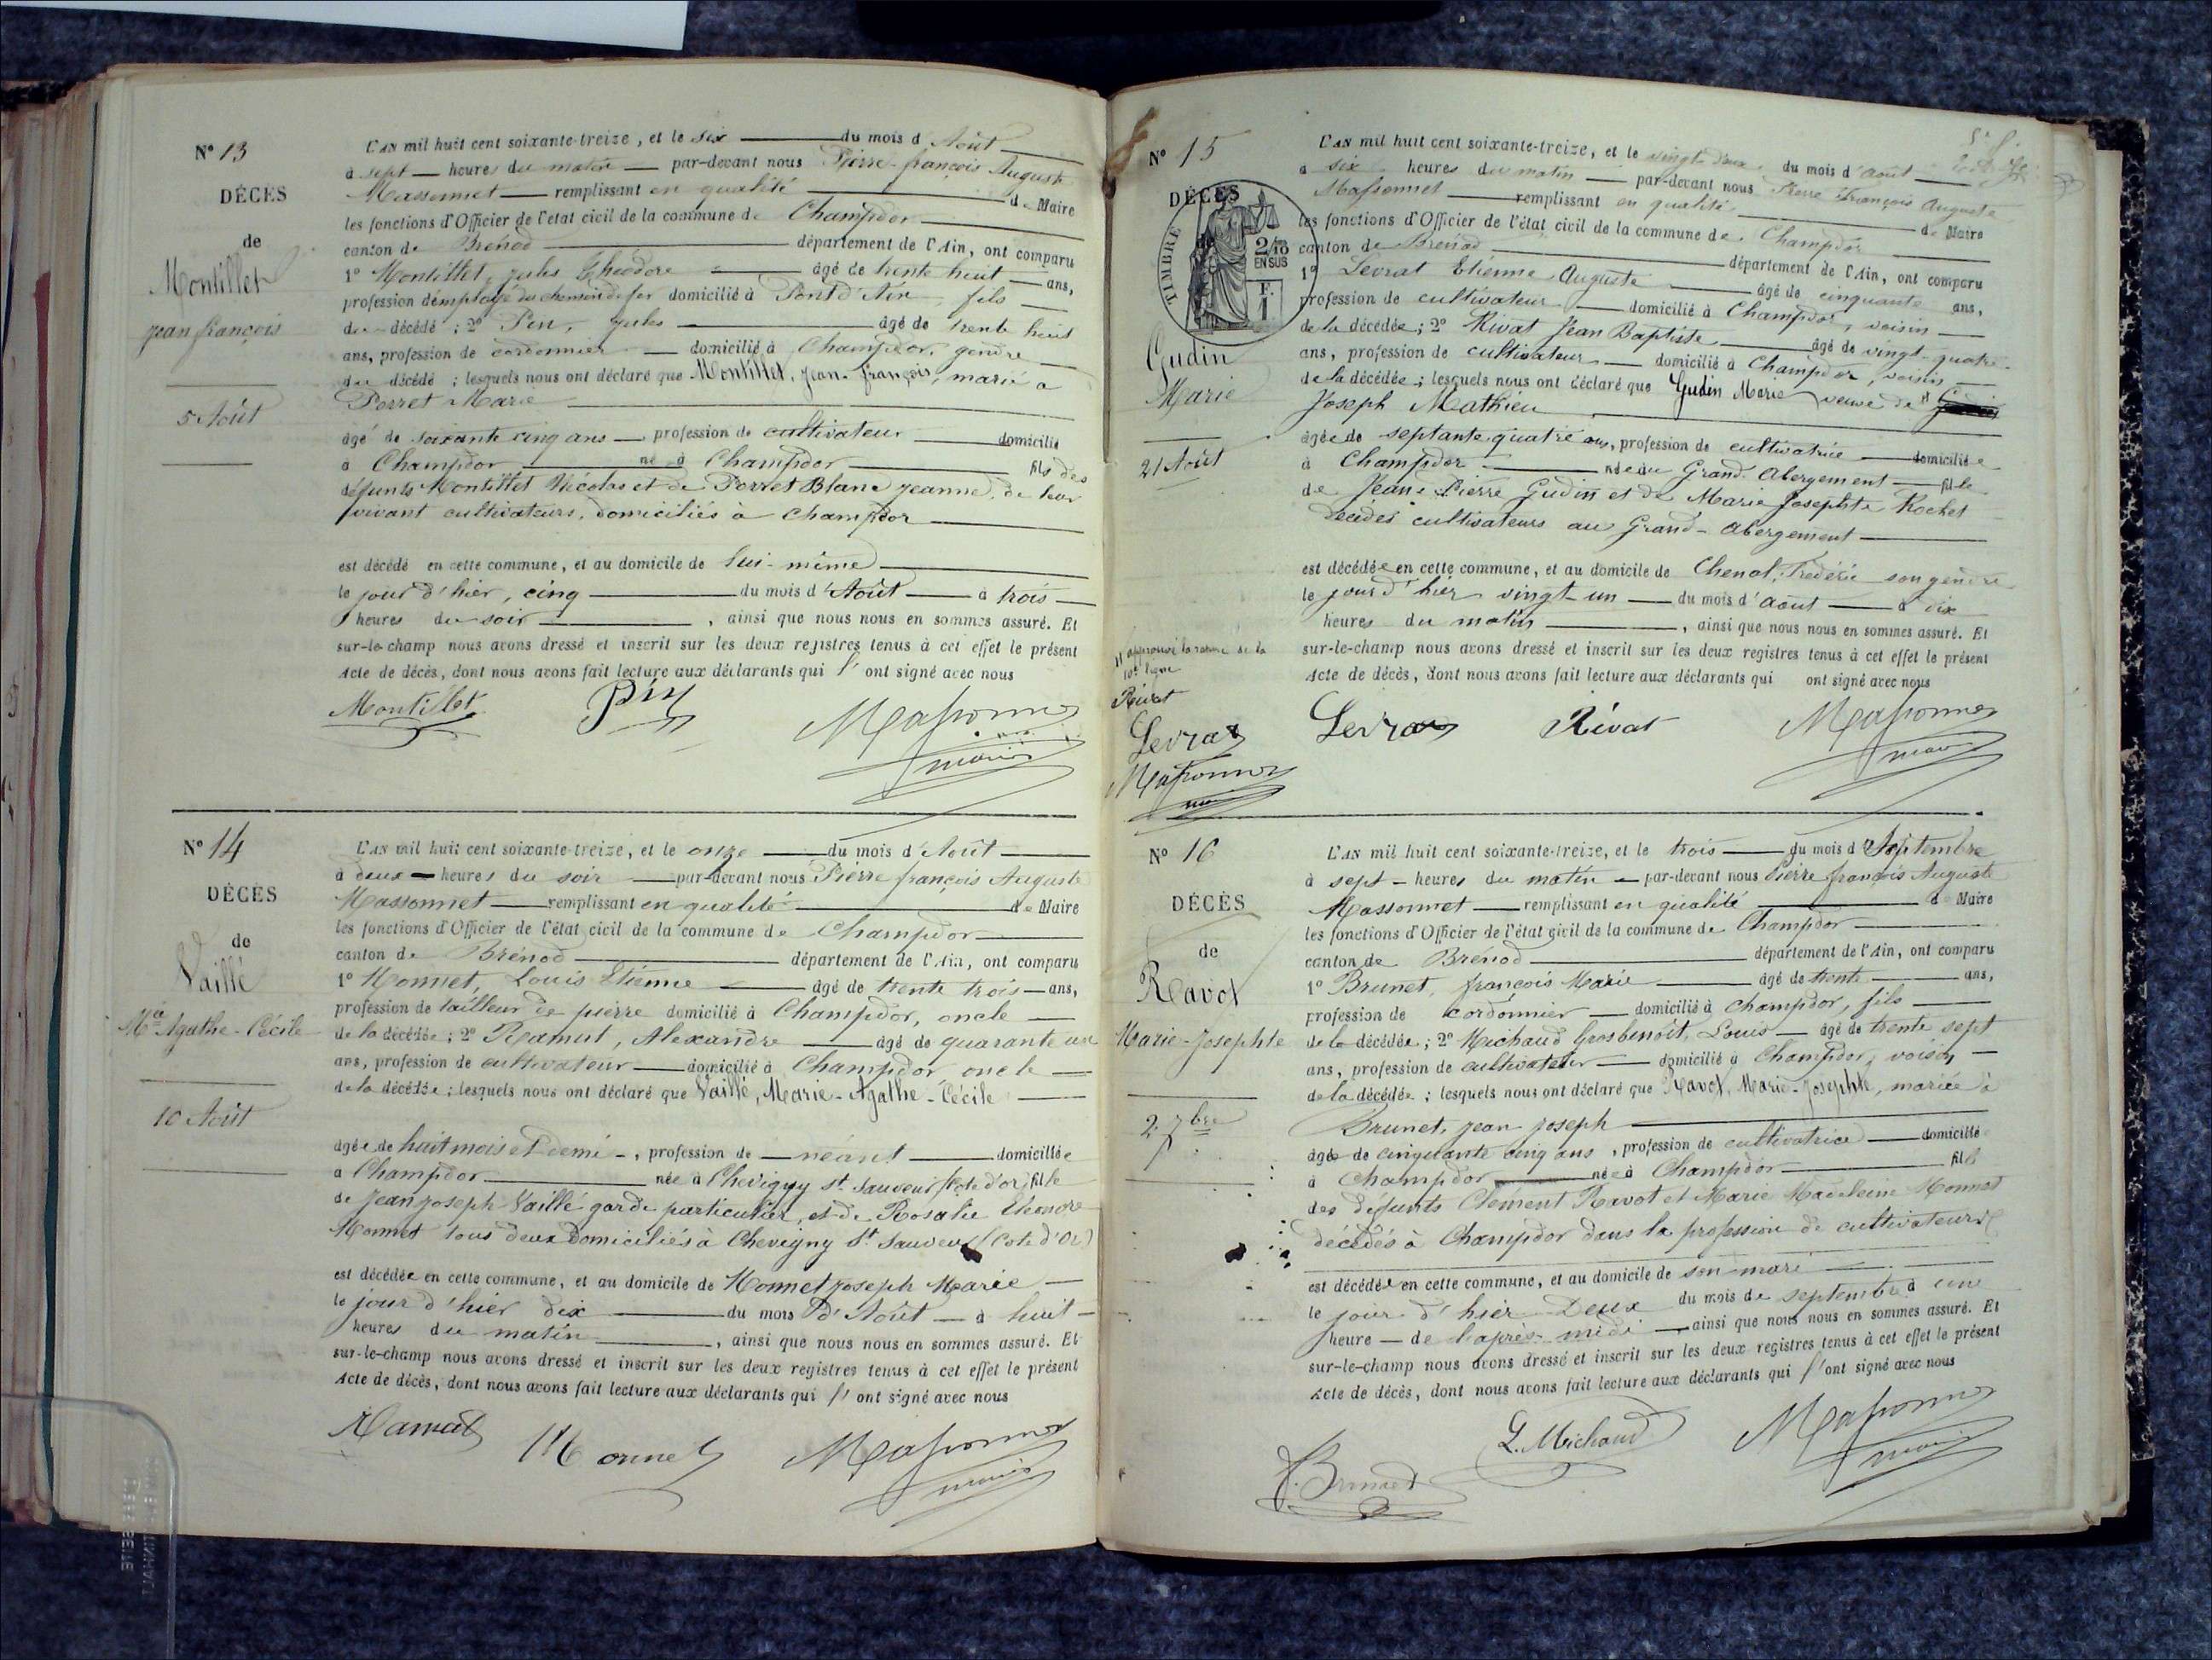 N° 13
DÉCÈS
de
Montillet
Jean françois
5 Août
L'AN mil huit cent soixante-treize, et le six du mois d'Août
à sept heures du matin par-devant nous Pierre-françois Auguste
Massonnet remplissant en qualité de Maire
les fonctions d'Officier de l'état civil de la commune de Champdor
canton de Brénod département de l'Ain, ont comparu
1° Montillet, Jules Théodore âgé de trente huit ans,
profession d'employé du chemin de fer domicilié à Pont d'Ain fils
du décédé ; 2° Pin, Jules âgé de trente huit
ans, profession de cordonnier domicilié à Champdor, gendre
du décédé ; lesquels nous ont déclaré que Montillet, Jean-françois, marié à
Perret Marie
âgé de soixante cinq ans profession de cultivateur domicilié
à Champdor né à Champdor fils des
défunts Montillet Nicolas et de Perret Blanc Jeanne, de leur
vivant cultivateurs, domiciliés à Champdor
est décédé en cette commune, et au domicile de lui-même
le jour d'hier, cinq du mois d'Août à trois
heures du soir , ainsi que nous nous en sommes assuré. Et
sur-le-champ nous avons dressé et inscrit sur les deux registres tenus à cet effet le présent
Acte de décès, dont nous avons fait lecture aux déclarants qui l'ont signé avec nous
Montillet Pin Massonnet
maire
N° 14
DÉCÈS
de
Vaillé
Mie Agathe-Cécile
10 Août
L'AN mil huit cent soixante-treize, et le onze du mois d'Août
à deux heures du soir par-devant nous Pierre françois Auguste
Massonnet remplissant en qualité de Maire
les fonctions d'Officier de l'état civil de la commune de Champdor
canton de Brénod département de l'Ain, ont comparu
1° Monnet, Louis Etienne âgé de trente trois ans,
profession de tailleur de pierre domicilié à Champdor, oncle
de la décédée ; 2° Ramut, Alexandre âgé de quarante un
ans, profession de cultivateur domicilié à Champdor oncle
de la décédée ; lesquels nous ont déclaré que Vaillé, Marie-Agathe-Cécile
âgée de huit mois et demi , profession de néant domiciliée
à Champdor née à Chevigny St. Sauveur (Côte d'or) fille
de Jean Joseph Vaillé garde particulier, et de Rosalie Eléonore
Monnet tous deux domiciliés à Chevigny St. Sauveur (Cote d'Or)
est décédée en cette commune, et au domicile de Monnet Joseph Marie
le jour d'hier dix du mois d'Août à huit
heures du matin , ainsi que nous nous en sommes assuré. Et
sur-le-champ nous avons dressé et inscrit sur les deux registres tenus à cet effet le présent
Acte de décès, dont nous avons fait lecture aux déclarants qui l'ont signé avec nous
Ramut Monnet Massonnet
maire
N° 15
DÉCÈS
TIMBRE
2/10
EN SUS
F.
1
Gudin
Marie
21 Août
L'AN mil huit cent soixante-treize, et le vingt deux du mois d'août
à six heures du matin par-devant nous Pierre François Auguste
Massonnet remplissant en qualité de Maire
les fonctions d'Officier de l'état civil de la commune de Champdor
canton de Brénod département de l'Ain, ont comparu
1° Levrat Etienne Auguste âgé de cinquante ans,
profession de cultivateur domicilié à Champdor, voisin
de la décédée ; 2° Rivat Jean Baptiste âgé de vingt-quatre
ans, profession de cultivateur domicilié à Champdor, voisin
de la décédée ; lesquels nous ont déclaré que Gudin Marie veuve de
Joseph Mathieu
âgée de septante quatre ans, profession de cultivatrice domiciliée
à Champdor née au Grand Abergement fille
de Jean-Pierre Gudin et de Marie Josephte Rochet
décédés cultivateurs au Grand-Abergement
est décédée en cette commune, et au domicile de Chenot, Frédéric son gendre
le jour d'hier vingt-un du mois d'août à dix
heures du matin , ainsi que nous nous en sommes assuré. Et
sur-le-champ nous avons dressé et inscrit sur les deux registres tenus à cet effet le présent
Acte de décès, dont nous avons fait lecture aux déclarants qui ont signé avec nous
Levrat Rivat Massonnet
maire
approuvé la rature de la
10e ligne
Rivat
Levrat
Massonnet
N° 16
DÉCÈS
de
Ravot
Marie-Josephte
2 7bre
L'AN mil huit cent soixante-treize, et le trois du mois de Septembre
à sept heures du matin par-devant nous Pierre françois Auguste
Massonnet remplissant en qualité de Maire
les fonctions d'Officier de l'état civil de la commune de Champdor
canton de Brénod département de l'Ain, ont comparu
1° Brunet, françois Marie âgé de trente ans,
profession de cordonnier domicilié à Champdor, fils
de la décédée ; 2° Michaud Grosbenoît, Louis âgé de trente sept
ans, profession de cultivateur domicilié à Champdor, voisin
de la décédée ; lesquels nous ont déclaré que Ravot, Marie-Josephte, mariée à
Brunet, Jean Joseph
âgée de cinquante cinq ans , profession de cultivatrice domiciliée
à Champdor née à Champdor fille
des défunts Clément Ravot et Marie Madeleine Monnet
décédés à Champdor dans la profession de cultivateurs
est décédée en cette commune, et au domicile de son mari
le jour d'hier Deux du mois de septembre à une
heure de l'après-midi , ainsi que nous nous en sommes assuré. Et
sur-le-champ nous avons dressé et inscrit sur les deux registres tenus à cet effet le présent
Acte de décès, dont nous avons fait lecture aux déclarants qui l'ont signé avec nous
F. Brunet L. Michaud Massonnet
maire